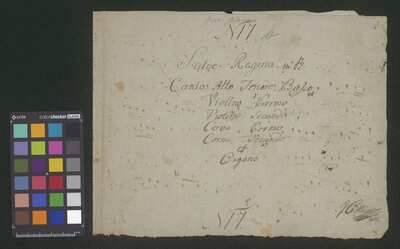 N 17
Salve Regina in B
Canto, Alto, Tenore, Basso
Violino Primo
Violino Secondo
Corno Primo
Corno Secondo
et
Organo
N 17
colorchecker CLASSIC